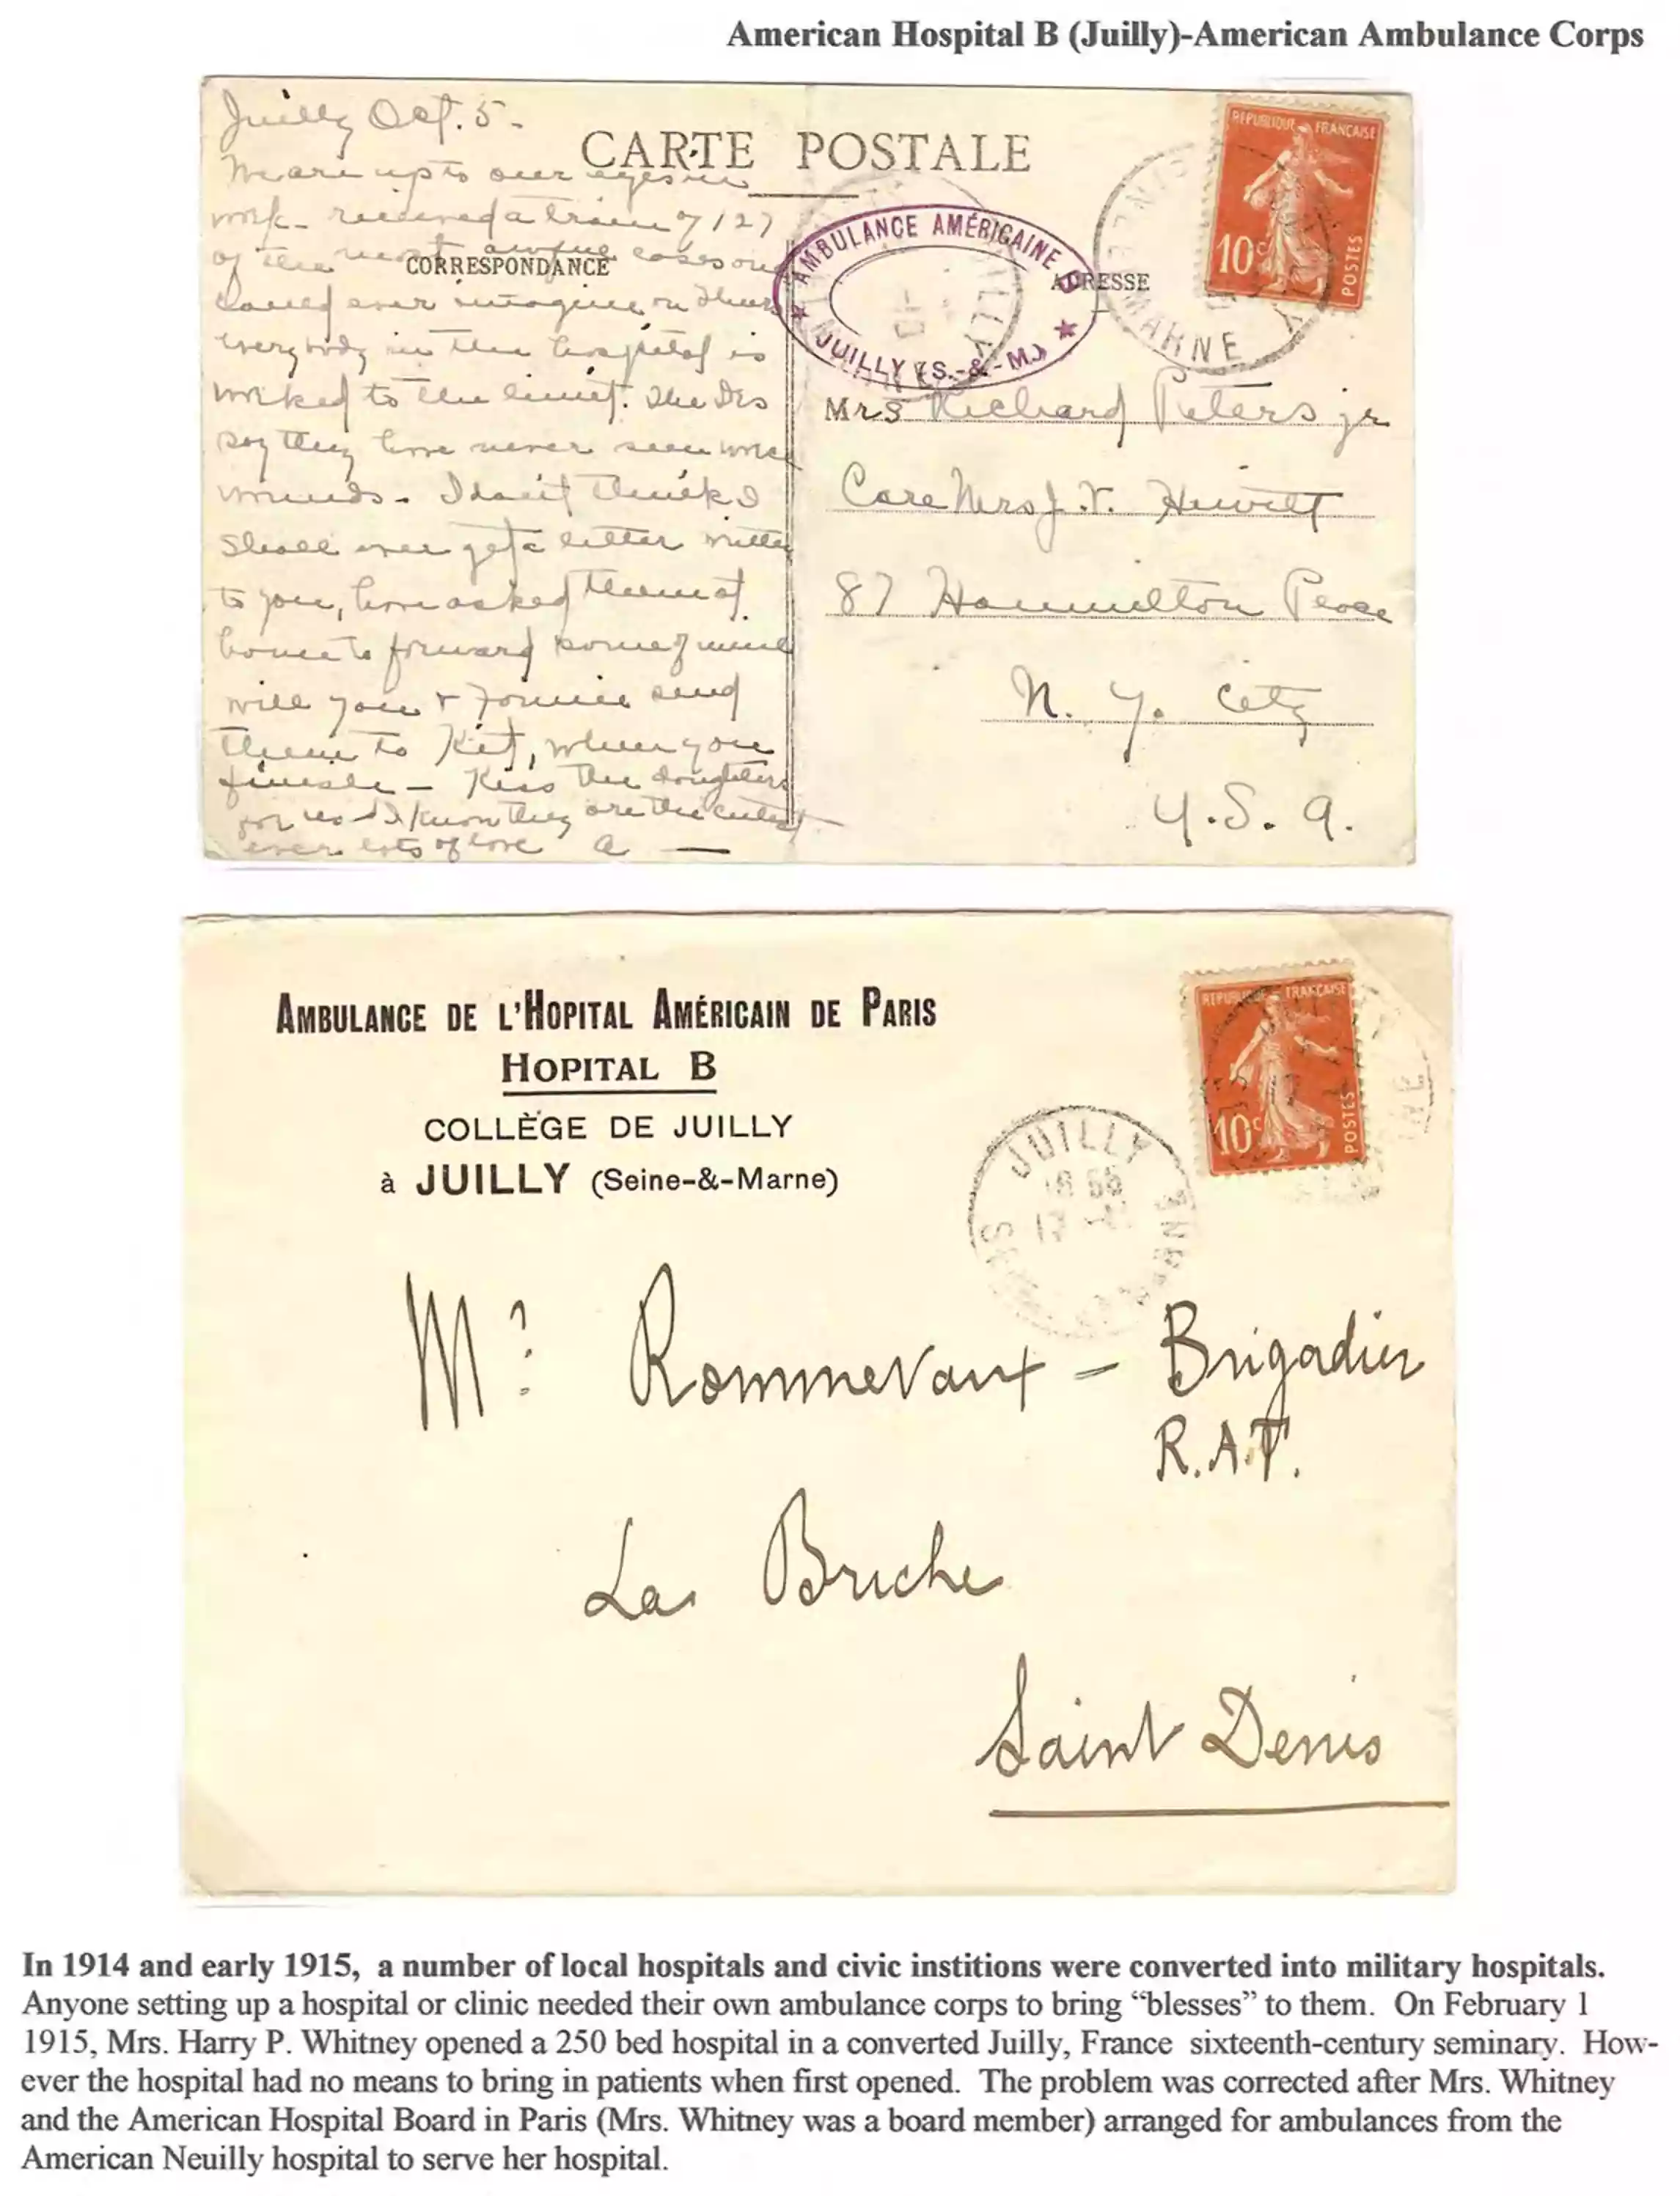 American Hospital B (Juilly)-American Ambulance Corps
Juilly Oct. 5-
CARTE POSTALE
We are up to our eyes in
work - received a train of 127
of the most awful cases one
CORRESPONDANCE
could ever imagine on Thurs
everybody in the hospital is
worked to the limit. The Drs
say they have never seen worse
wounds - I don't think I
shall ever get a letter written
to you, have asked them at
home to forward some of mine
will you & send
them to Kit, when you
finish - Kiss the daughters
for me I know they are the cutest
ever lots of love A —
AMBULANCE AMÉRICAINE B
JUILLY (S.-&-M.)
ADRESSE
REPUBLIQUE FRANCAISE
10c
POSTES
MARNE
Mrs Richard Peters jr
Care Mrs J. V. Hewitt
87 Hammilton Place
N. Y. City
U.S.A.
AMBULANCE DE L'HOPITAL AMÉRICAIN DE PARIS
HOPITAL B
COLLÈGE DE JUILLY
à JUILLY (Seine-&-Marne)
REPUBLIQUE FRANCAISE
10c
POSTES
JUILLY
Mr Rommevaux - Brigadier
R.A.T.
La Briche
Saint Denis
In 1914 and early 1915, a number of local hospitals and civic institions were converted into military hospitals.
Anyone setting up a hospital or clinic needed their own ambulance corps to bring “blesses” to them. On February 1
1915, Mrs. Harry P. Whitney opened a 250 bed hospital in a converted Juilly, France sixteenth-century seminary. How-
ever the hospital had no means to bring in patients when first opened. The problem was corrected after Mrs. Whitney
and the American Hospital Board in Paris (Mrs. Whitney was a board member) arranged for ambulances from the
American Neuilly hospital to serve her hospital.